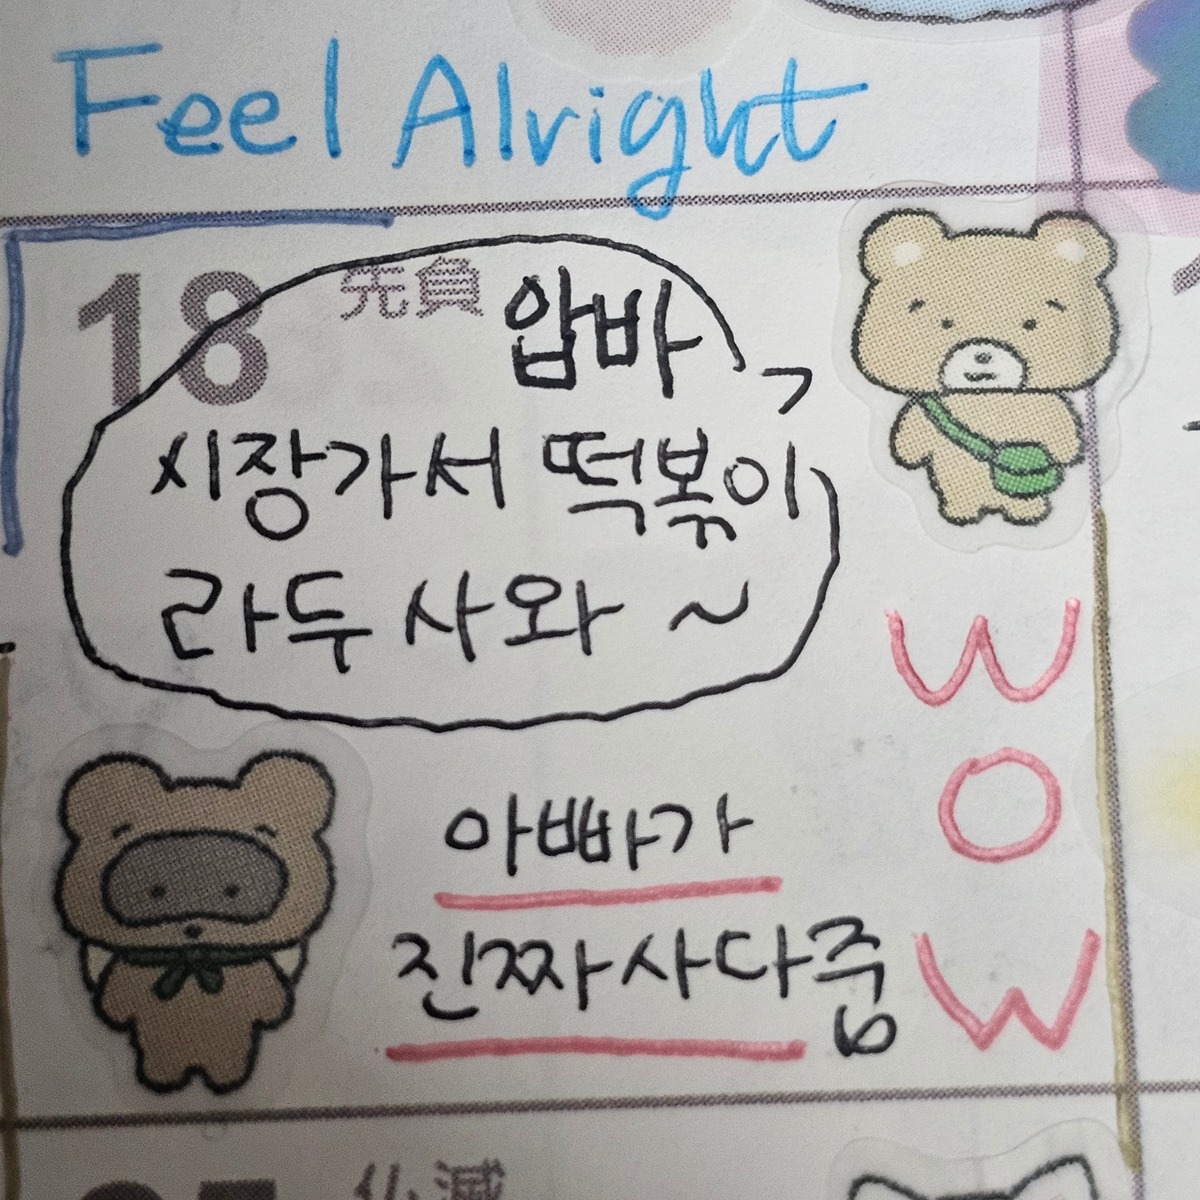 Feel Alright
18 先負 압바
시장가서 떡볶이
라두 사와 ~
아빠가
진짜사다줌
WOW
仏滅